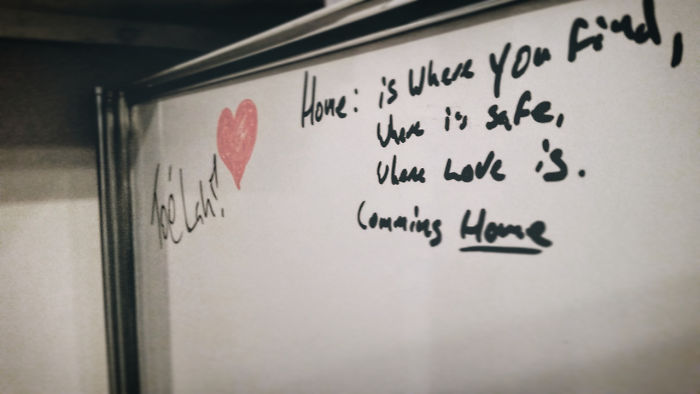 Home: is where you find,
where is safe,
where Love is.
Comming Home